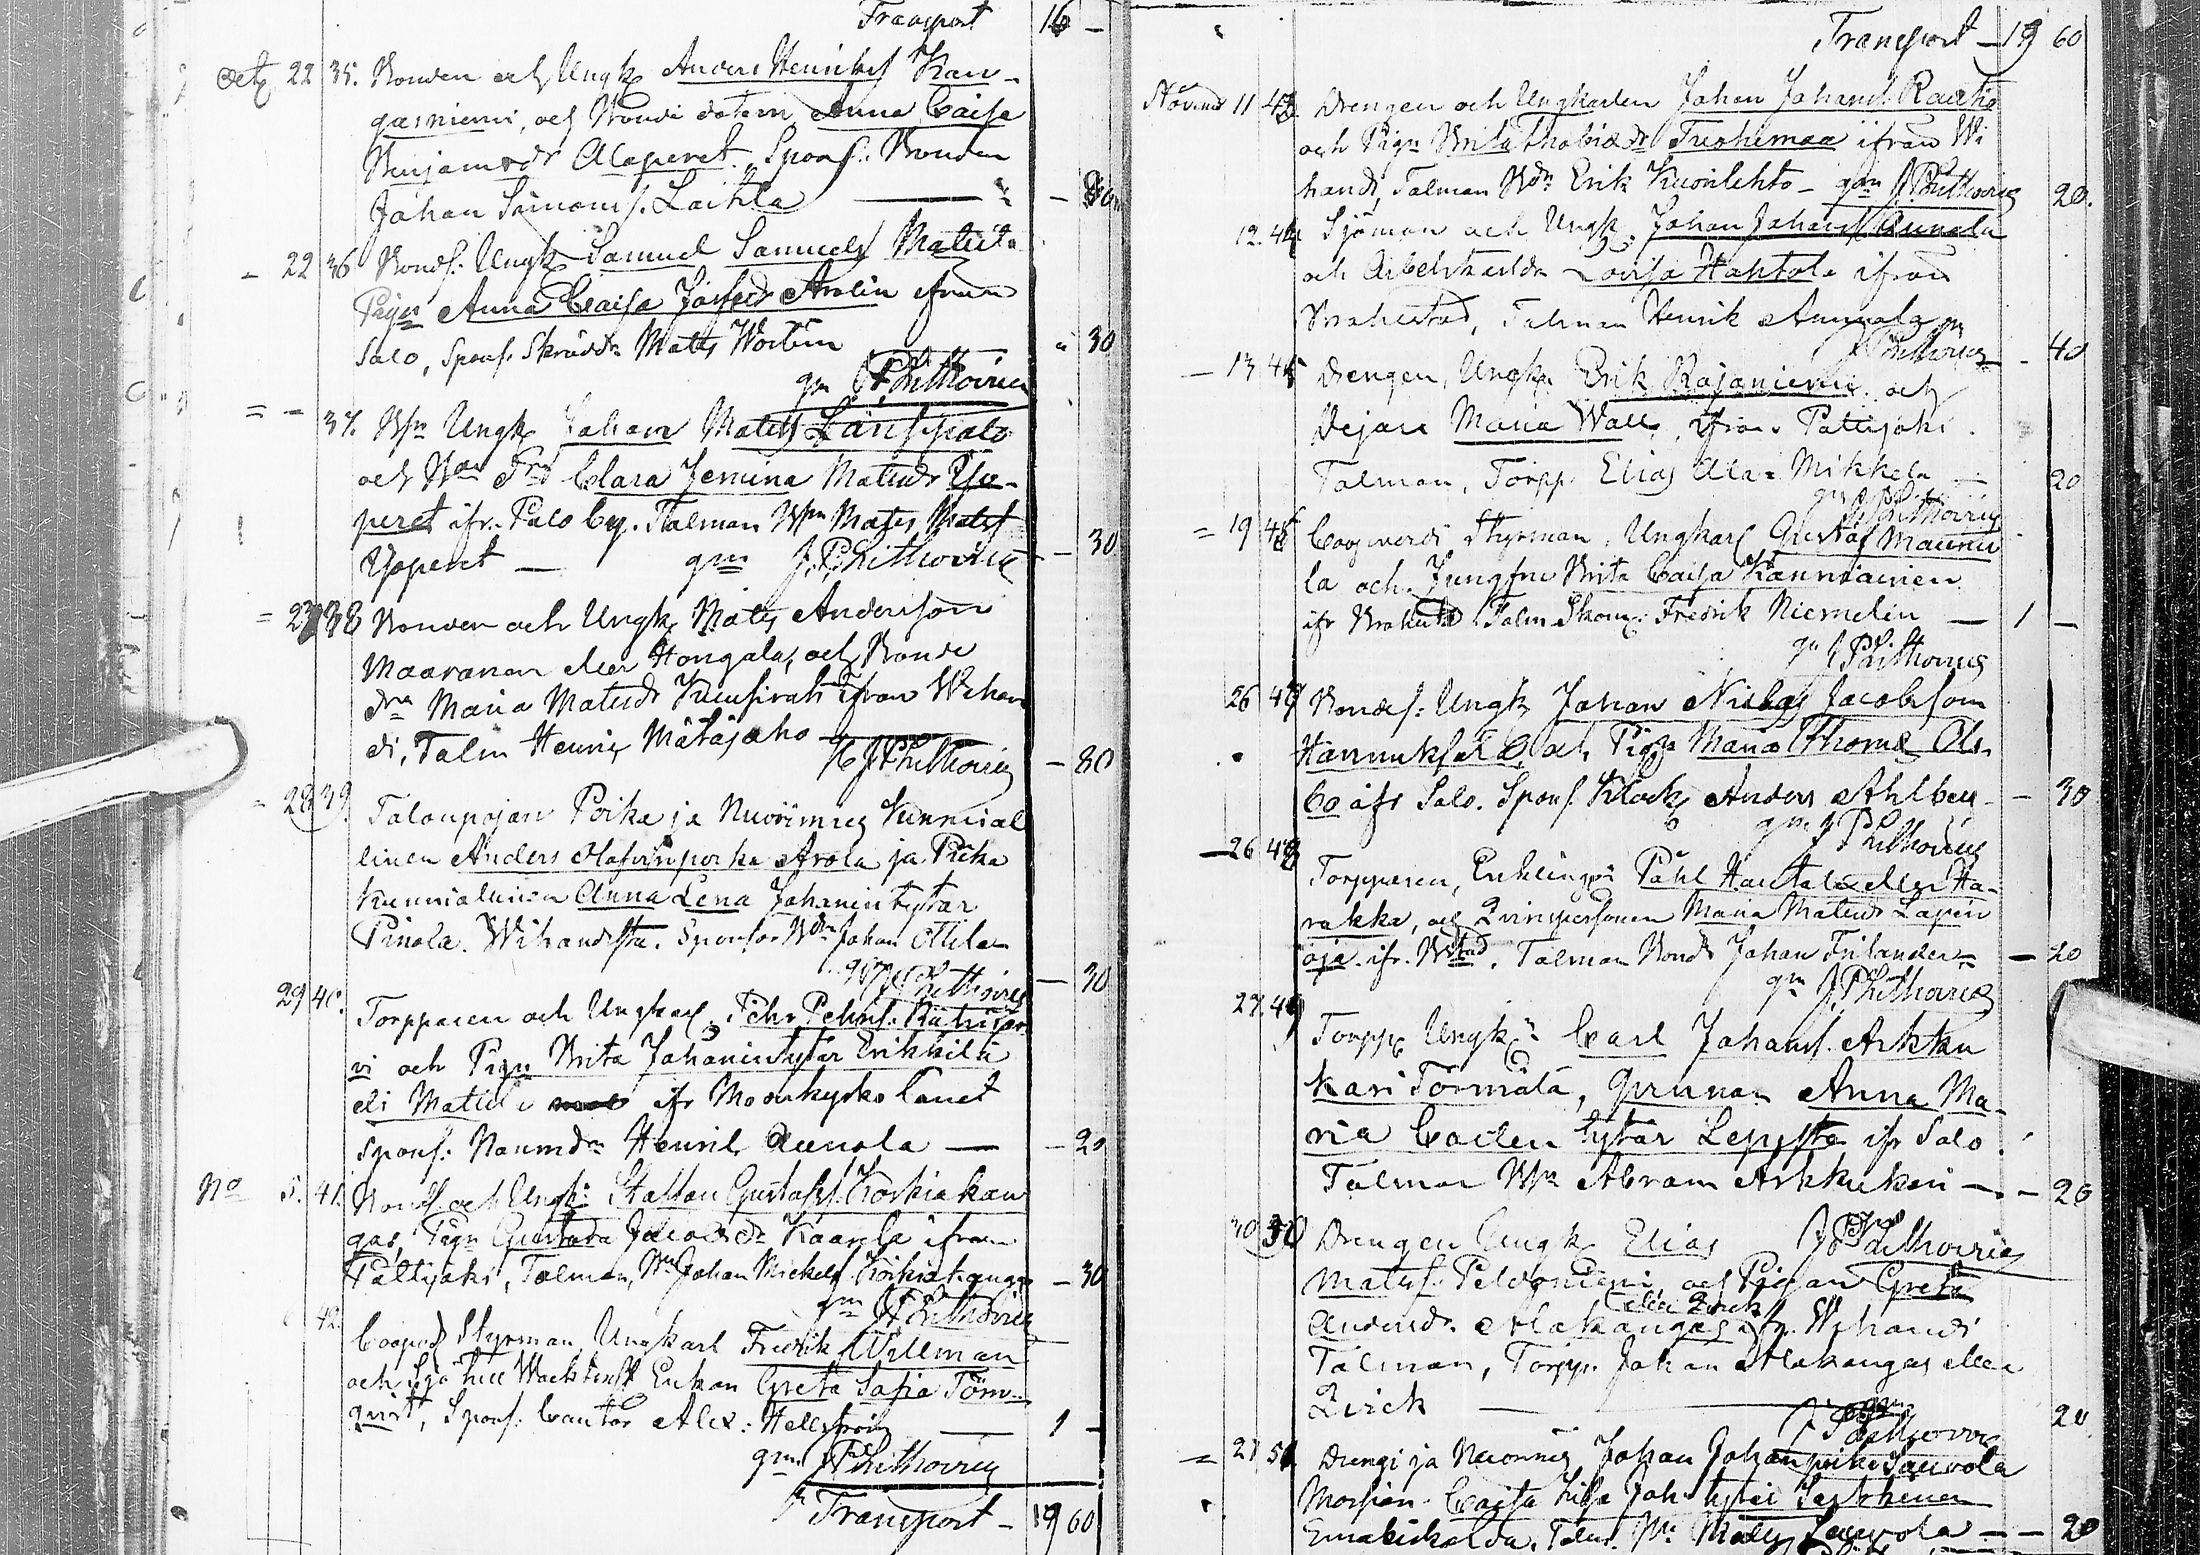 Transport 16 –
Octb 22 35. Bonden och Ungk Anders Henriksf Kan-
gasniemi, och Bonde dottern Anna Caisa
Benjamsdr Alaperet. Sponf: Bonden
Johan Simonsf. Laitila –
– 22 36 Bondf: Ungk Samuel Samuelsf Matula
Pign Anna Caisa Josefsdr Arolin ifrån
Salo, Sponf. Skrädd Matts Norlin " 30
gm J P Lithovius
= – 37. Bn Ungk Johan Matsf Länsipalo
och Frd Clara Jemina Matsdr Yp-
peret ifr. Palo by. Talman Bn Mats Matsf
Ypperet — gm J. P. Lithovius – 30
= 27 38 Bonden och Ungk Mats Andersson
Maaranen eller Hongala, och Bonde
dra Maria Matsdr Kuusirati ifrån Wihan
di, Talm Henric Mätäjaho
J P Lithovius – 80
= 28 39. Talonpojan Poika ja Nuorimies Kunnial
linen Anders Olafinpoika Arola ja Piika
Kunniallinen Anna Lena Johanintytär
Pinola. Wihandista. Sponsor Bdn Johan Ollila
gm J P Lithovius – 30
29 40. Torpparen och Ungkarl Pehr Pehrsf. Ratujär
vi och Pign Brita Johanintytär Erikkilä
eli Matula ifr Muonkyskö länet
sponf: Nämndn Henrik Aunola — – 20
No 5. 41. Bondf och Ungk: Staffan Gustafsf. Korkiakan
gas, Pign Gustava Jacobsdr Kaarela ifrån
Pattijoki, Talman, Bn Johan Mickelsf. Korkiakangas – 30
gm J P Lithovius
42. Coopvd Styrman Ungkarl Fredrik Willman
och Sjö Tull Waktmst Enkan Greta Sofia Törn-
qvist, Sponf. Cantor Alex: Hellström — 1 –
gm J P Lithovius
Transport – 19 60
Transport – 19 60
Novemb 11 43. Drengen och Ungkarlen Johan Johansf. Rautio
och Pign Brita Thobiædr Tuohimaa ifrån Wi
handi, Talman Bdn Erik Kuonlehto – gm J P Lithovius 20.
12. 44. Sjöman och Ungk. Johan Johansf Aunola
och Arbetskarlsdr Lovisa Hahtola ifrån
Brahestad, Talman Henrik Aunola gm
J P Lithovius – 40
– 13 45 Drengen, Ungk: Erik Kajaniemi och
Pejan Maria Wall, ifrån Pattijoki.
Talman, Torpp. Elias Ala-Mikkela — 20
gm J P Lithovius
= 19 46 Coopverdi Styrman, Ungkarl Gustaf Maunu
la och Jungfru Brita Caisa Kanniainen
ifr Brahestd Talm Skom: Fredrik Niemelin — 1 –
gm J P Lithovius
26 47 Bondef: Ungk Johan Niclas Jacobsson
Hannuksela, och Pign Maria Thoms Ala-
Co åfr Salo. Sponf. Klock Anders Ahlberg – 30
gm J P Lithovius
– 26 48 Torpparen, Enklingen Påhl Hautala eller Ha-
rakka, och Qvinspersonen Maria Matsdr Lapin
oja ifr. Bstad, Talman Bonds Johan Frilander – – 20
gm J P Lithovius
27. 49 Torpp Ungk: Carl Johansf. Arkku
kari Törmälä, Qvinnan Anna Ma-
ria Carlen tytär Leppstö ifr Salo
Talman Bn Abram Arkkukari – – 20
30 50 Drengen Ungk Elias gm J P Lithovius
Matsf. Peldoniemi och Pigan Greta
eller Qvick
Andersdr. Alakangas ifr. Wihandi
Talman, Torpp. Johan Alakangas eller
Qvick — 20
gm J P Lithovius
= 27 51 Drengi ja Nuorimies Johan Johanpoika Sauvola
Morsian. Caisa Liisa Joh: tytär
Talm. Bn Mats Sauvola – – 20